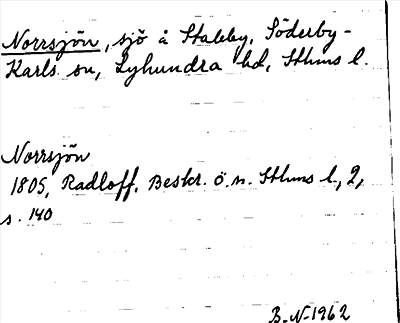 Norrsjön, sjö å Stabby, Söderby-
Karls sn, Lyhundra hd, Sthms l.
Norrsjön
1805, Radloff. Beskr. ö. n. Sthms l., 2,
s. 140
B-N-1962